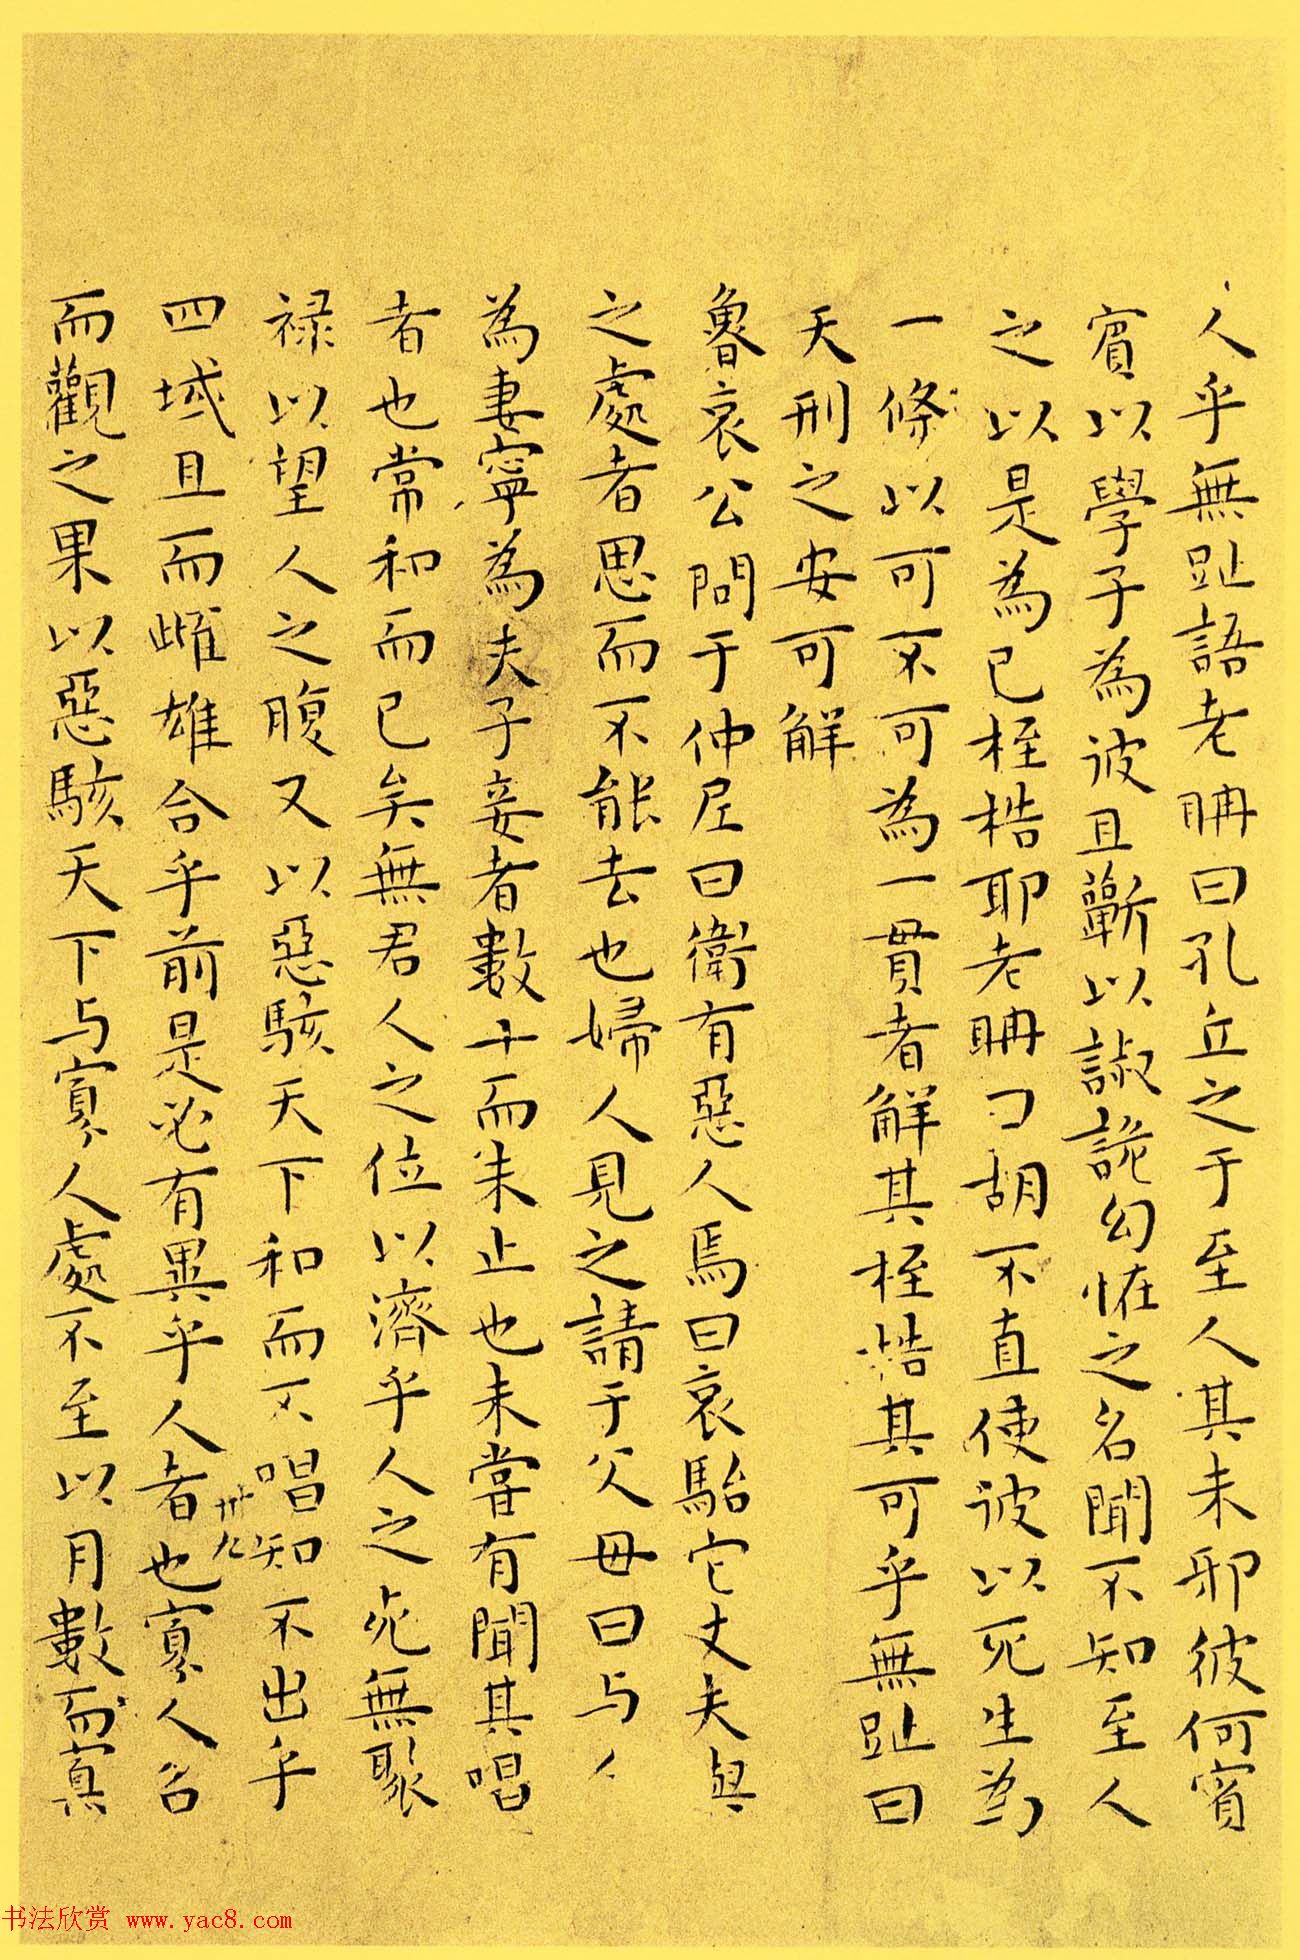 人乎無趾語老聃曰孔丘之于至人其未邪彼何賓
賓以學子為彼且蘄以諔詭幻怪之名聞不知至人
之以是為已桎梏耶老聃曰胡不直使彼以死生為
一條以可不可為一貫者解其桎梏其可乎無趾曰
天刑之安可解
魯哀公問于仲尼曰衛有惡人焉曰哀駘它丈夫與
之處者思而不能去也婦人見之請于父母曰与人
為妻寧為夫子妾者數十而未止也未嘗有聞其唱
者也常和而已矣無君人之位以濟乎人之死無聚
祿以望人之腹又以惡駭天下和而不唱知不出乎
四域且而雌雄合乎前是必有異乎人者也寡人召
卅九
而觀之果以惡駭天下与寡人處不至以月數而寡
书法欣赏 www.yac8.com